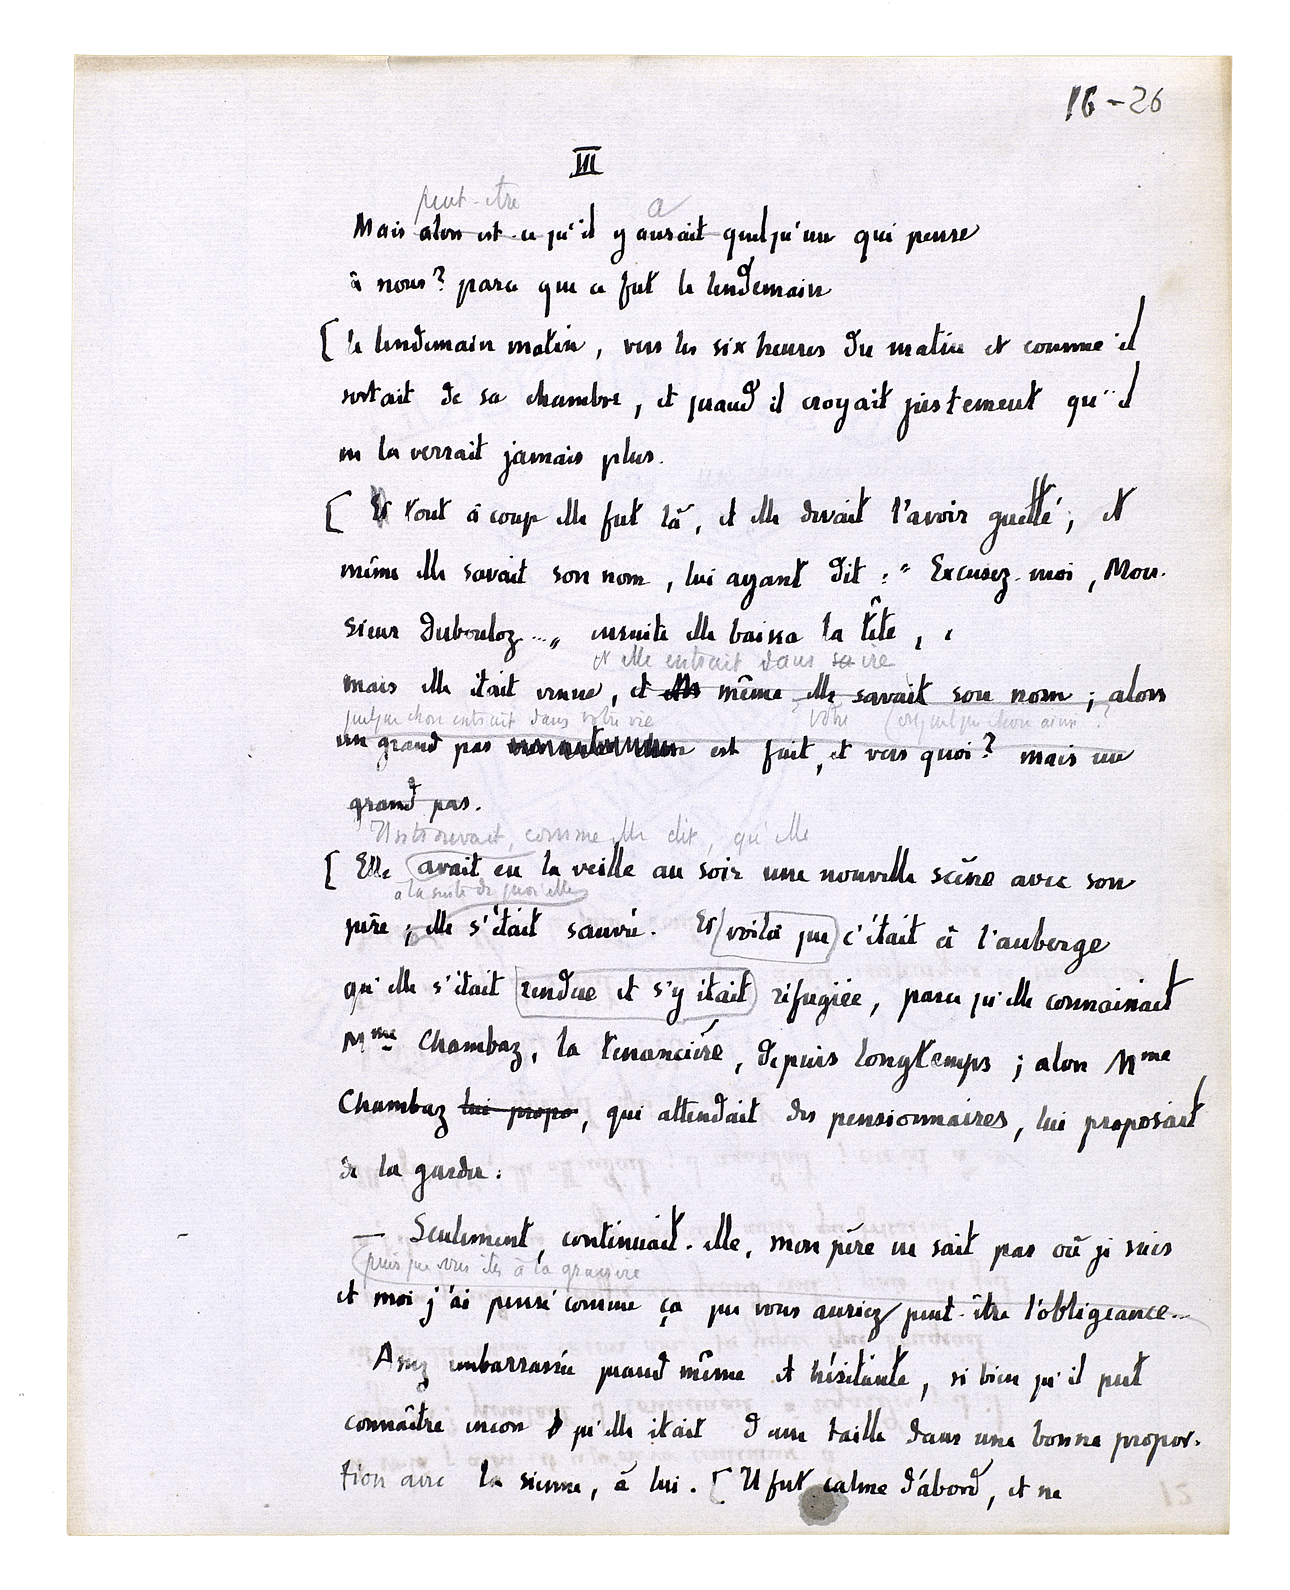 16-26
III
peut-être a
Mais alors est-ce qu'il y aurait quelqu'un qui pense
à nous? parce que ce fut le lendemain
[ le lendemain matin, vers les six heures du matin et comme il
sortait de sa chambre, et quand il croyait justement qu'il
ne la verrait jamais plus.
[ Et tout à coup elle fut là, et elle devait l'avoir guetté; et
même elle savait son nom, lui ayant dit : " Excusez-moi, Mon-
sieur Duboulоz..." ensuite elle baissa la tête,
et elle entrait dans sa vie
mais elle était venue, et elle même elle savait son nom ; alors
quelque chose entrait dans votre vie votre
un grand pas est fait, et vers quoi? mais un
grand pas.
Il se trouvait, comme elle dit, qu'elle
[ Elle avait eu la veille au soir une nouvelle scène avec son
à la suite de quoi elle
père ; elle s'était sauvée. Et voilà que c'était à l'auberge
qu'elle s'était rendue et s'y était réfugiée, parce qu'elle connaissait
Mme Chambaz, la tenancière, depuis longtemps ; alors Mme
Chambaz lui propo, qui attendait des pensionnaires, lui proposait
de la garder.
— Seulement, continuait-elle, mon père ne sait pas où je suis
puisque vous êtes à la gravière
et moi j'ai pensé comme ça que vous auriez peut-être l'obligeance...
Assez embarrassée quand même et hésitante, si bien qu'il put
connaître encore qu'elle était d'une taille dans une bonne propor-
tion avec la sienne, à lui. [ Il fut calme d'abord, et ne